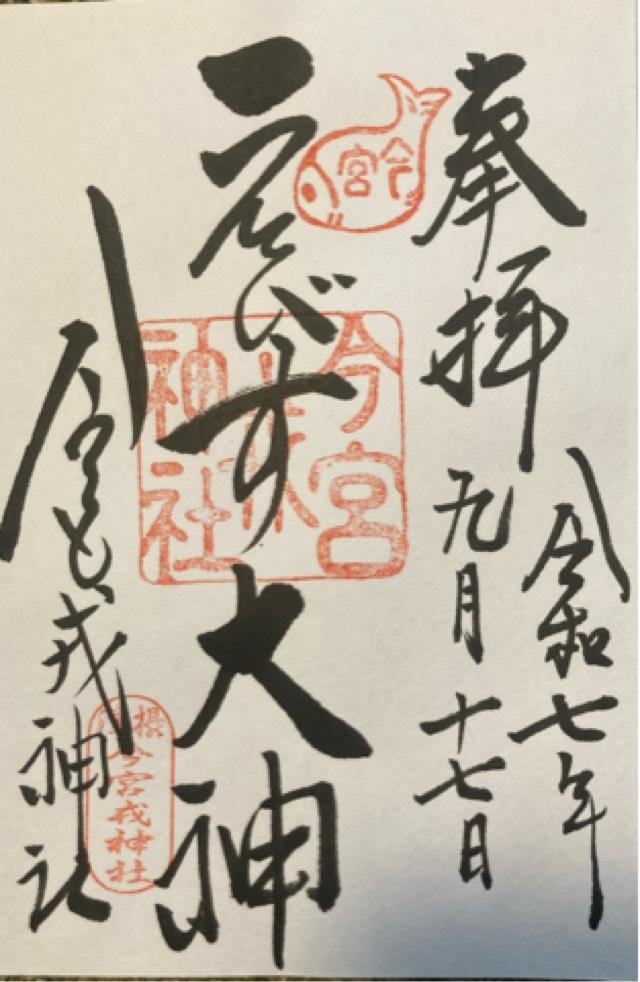 奉拝
令和七年
九月十七日
今宮
ゑびす大神
今宮戎神社
今宮戎神社
摂
今宮戎神社